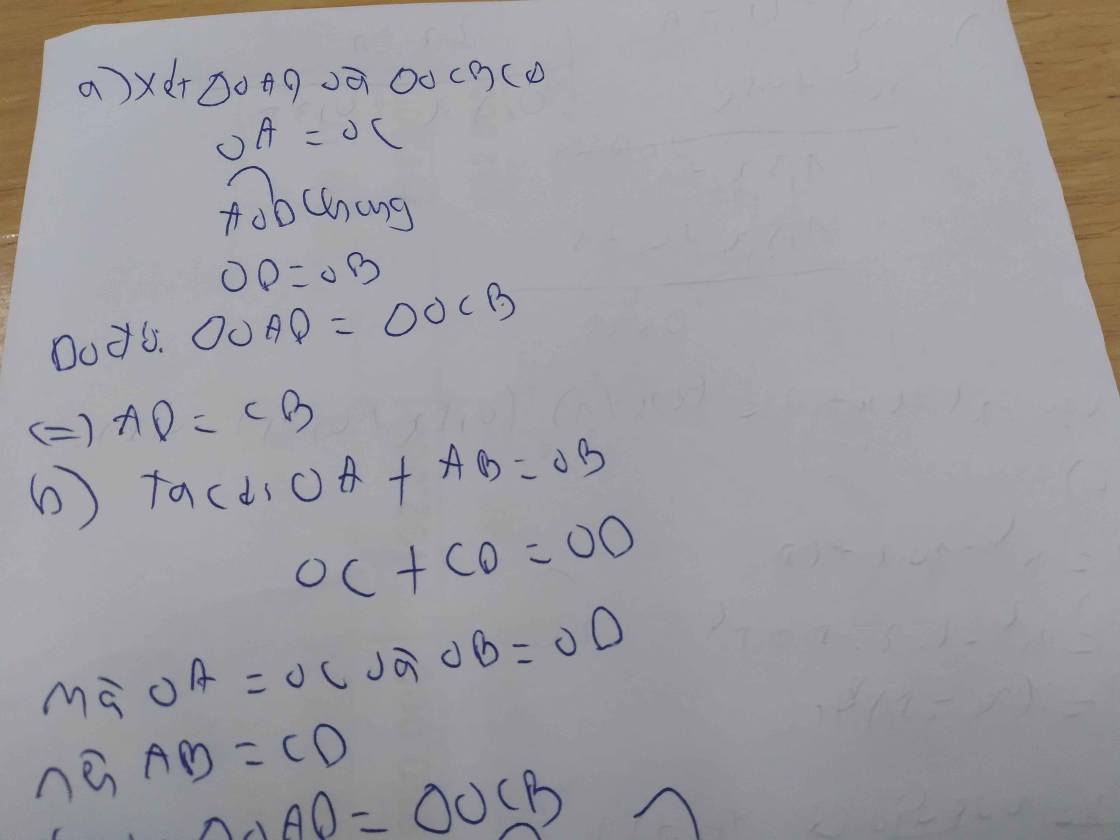 a) Xét ΔOAD và ΔOCB CD
OA = OC
AOD chung
OD = OB
Do đó: ΔOAD = ΔOCB
(=) AD = CB
b) Ta có: OA + AB = OB
OC + CD = OD
mà OA = OC và OB = OD
nên AB = CD
ΔOAD = ΔOCB